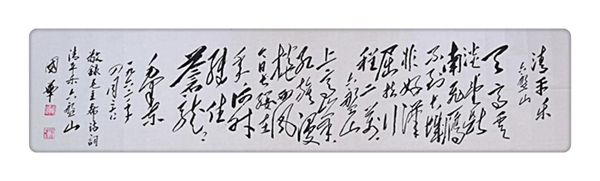 清平乐
六盘山
天高云
淡望断
南飞雁
不到长城
非好汉
屈指行
程二万
六盘山
上高峰
红旗漫
卷西风
今日长缨在
手何时
缚住
苍龙
毛泽东
一九六一年
四月
敬录毛主席诗词
清平乐六盘山
国华